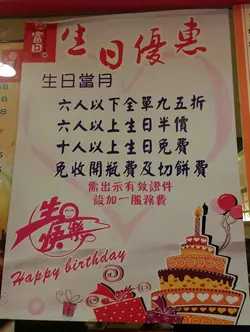 富臨
生日優惠
生日當月
六人以下全單九五折
六人以上生日半價
十人以上生日免費
免收開瓶費及切餅費
需出示有效證件
設加一服務費
生日快樂
Happy birthday